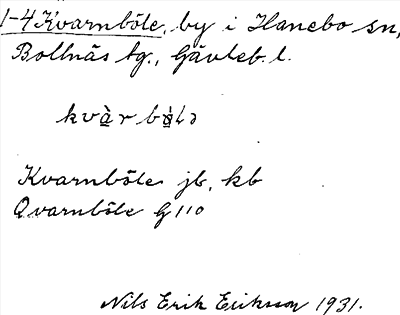 1-4 Kvarnböle, by i Hanebo sn,
Bollnäs tg., Gävleb. l.
kvàr bə̀lə
Kvarnböle jb, kb
Qvarnböle G 110
Nils Erik Eriksson 1931.